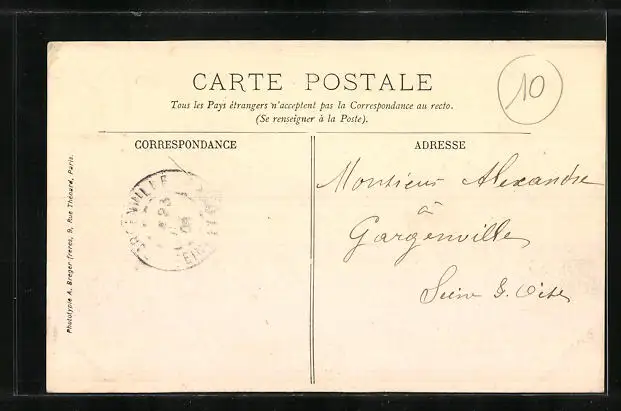 CARTE POSTALE
10
Tous les Pays étrangers n'acceptent pas la Correspondance au recto.
(Se renseigner à la Poste).
CORRESPONDANCE
ADRESSE
Monsieur Alexandre
à
Gargenville
Seine & Oise
Phototypie A. Breger frères, 9, Rue Thénard, Paris.